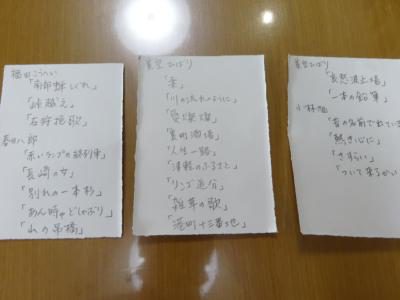 福田こうへい
「南部蝉しぐれ」
「峠越え」
「石狩挽歌」
春日八郎
「赤いランプの終列車」
「長崎の女」
「別れの一本杉」
「あん時ゃどしゃぶり」
「山の吊橋」
美空ひばり
「柔」
「川の流れのように」
「愛燦燦」
「裏町酒場」
「人生一路」
「津軽のふるさと」
「リンゴ追分」
「雑草の歌」
「港町十三番地」
美空ひばり
「哀愁波止場」
「一本の鉛筆」
小林旭
「昔の名前で出ています
「熱き心に」
「さすらい」
「ついて来るかい